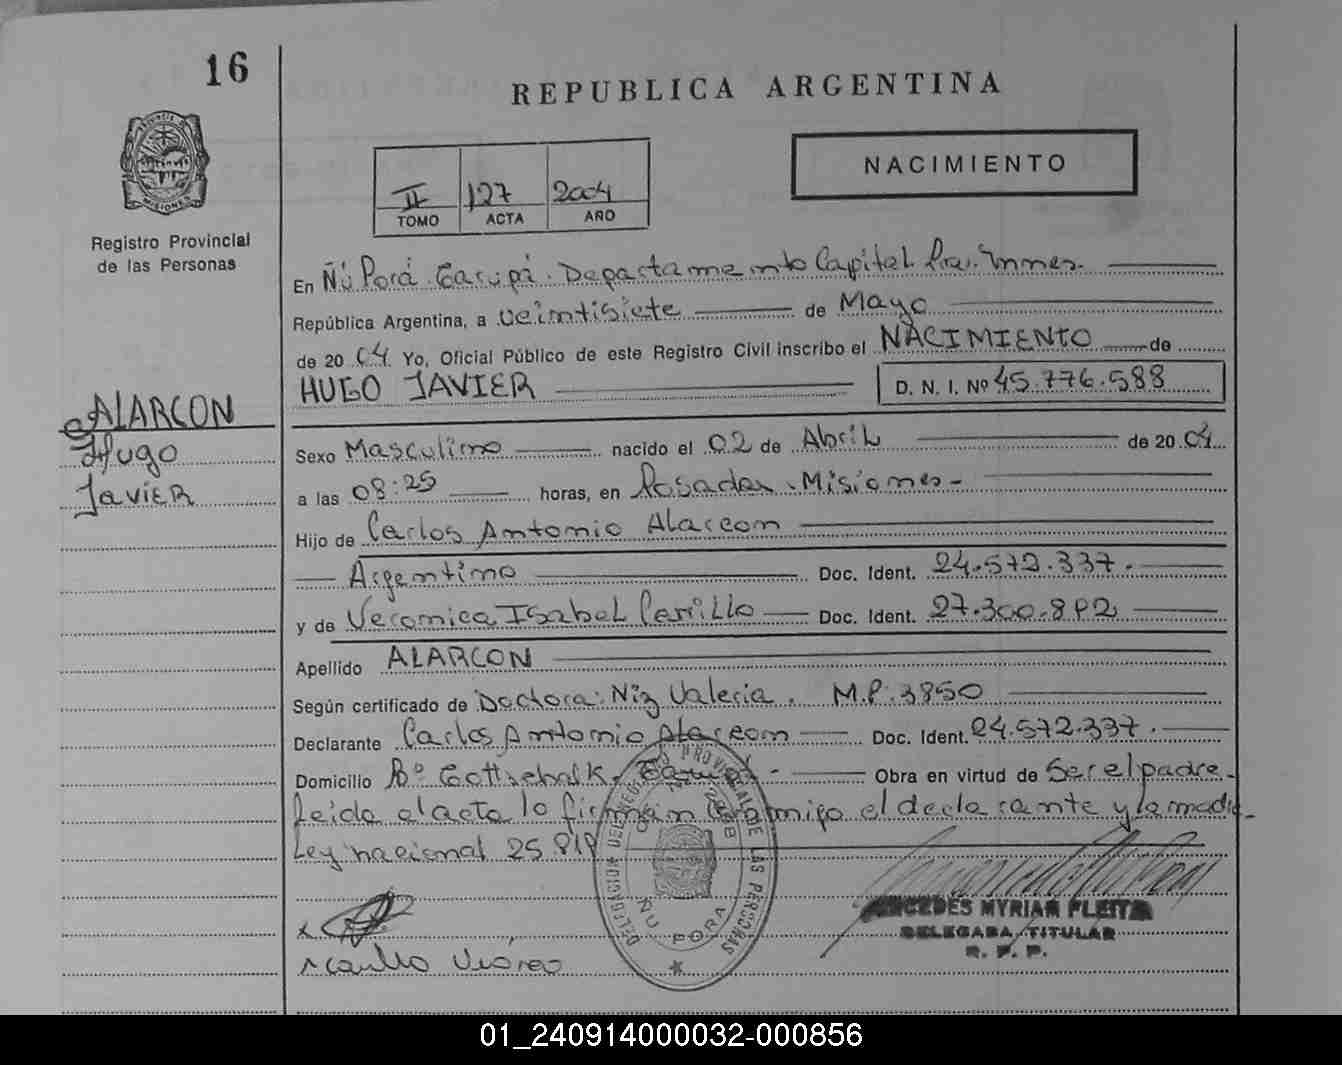 16
REPUBLICA ARGENTINA
NACIMIENTO
II 127 2004
TOMO ACTA AÑO
PROVINCIA DE MISIONES
Registro Provincial
de las Personas
En Ñú Porá Garupá. Departamento Capital. Pcia. Mnes.
República Argentina, a veintisiete de Mayo
de 2004 Yo, Oficial Público de este Registro Civil inscribo el NACIMIENTO de
HUGO JAVIER D. N. I. Nº 45.776.588
ALARCON
Hugo
Javier
Sexo Masculino nacido el 02 de Abril de 2004
a las 08:25 horas, en Posadas. Misiones-
Hijo de Carlos Antonio Alarcon
Argentino Doc. Ident. 24.572.337.
y de Veronica Isabel Carrillo Doc. Ident. 27.300.892
Apellido ALARCON
Según certificado de Doctora: Niz Valeria. M.P: 3850
Declarante Carlos Antonio Alarcon Doc. Ident. 24.572.337.
Domicilio Bº Gottschalk. Garupá.- Obra en virtud de Ser el padre-
Leida el acta lo firman conmigo el declarante y la madre-
Ley nacional 25.819
DELEGACION DEL REGISTRO PROVINCIAL DE LAS PERSONAS
ÑU PORA
MERCEDES MYRIAM FLEITA
DELEGADA TITULAR
R. P. P.
x
01_240914000032-000856